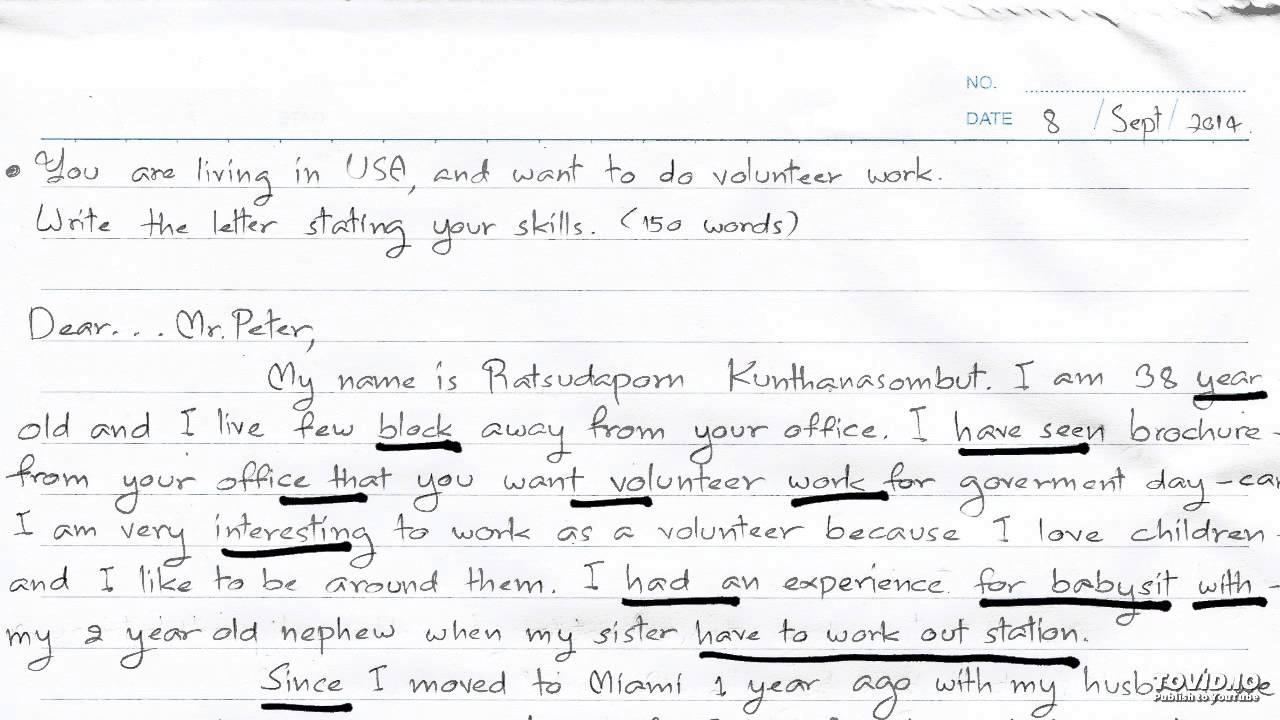 NO.
DATE 8 / Sept / 2014.
• You are living in USA, and want to do volunteer work.
Write the letter stating your skills. (150 words)
Dear... Mr. Peter,
My name is Ratsudaporn Kunthanasombut. I am 38 year
old and I live few block away from your office. I have seen brochure-
from your office that you want volunteer work for goverment day-car
I am very interesting to work as a volunteer because I love children-
and I like to be around them. I had an experience for babysit with-
my 2 year old nephew when my sister have to work out station.
Since I moved to Miami 1 year ago with my
TOVID.IO
Publish to YouTube